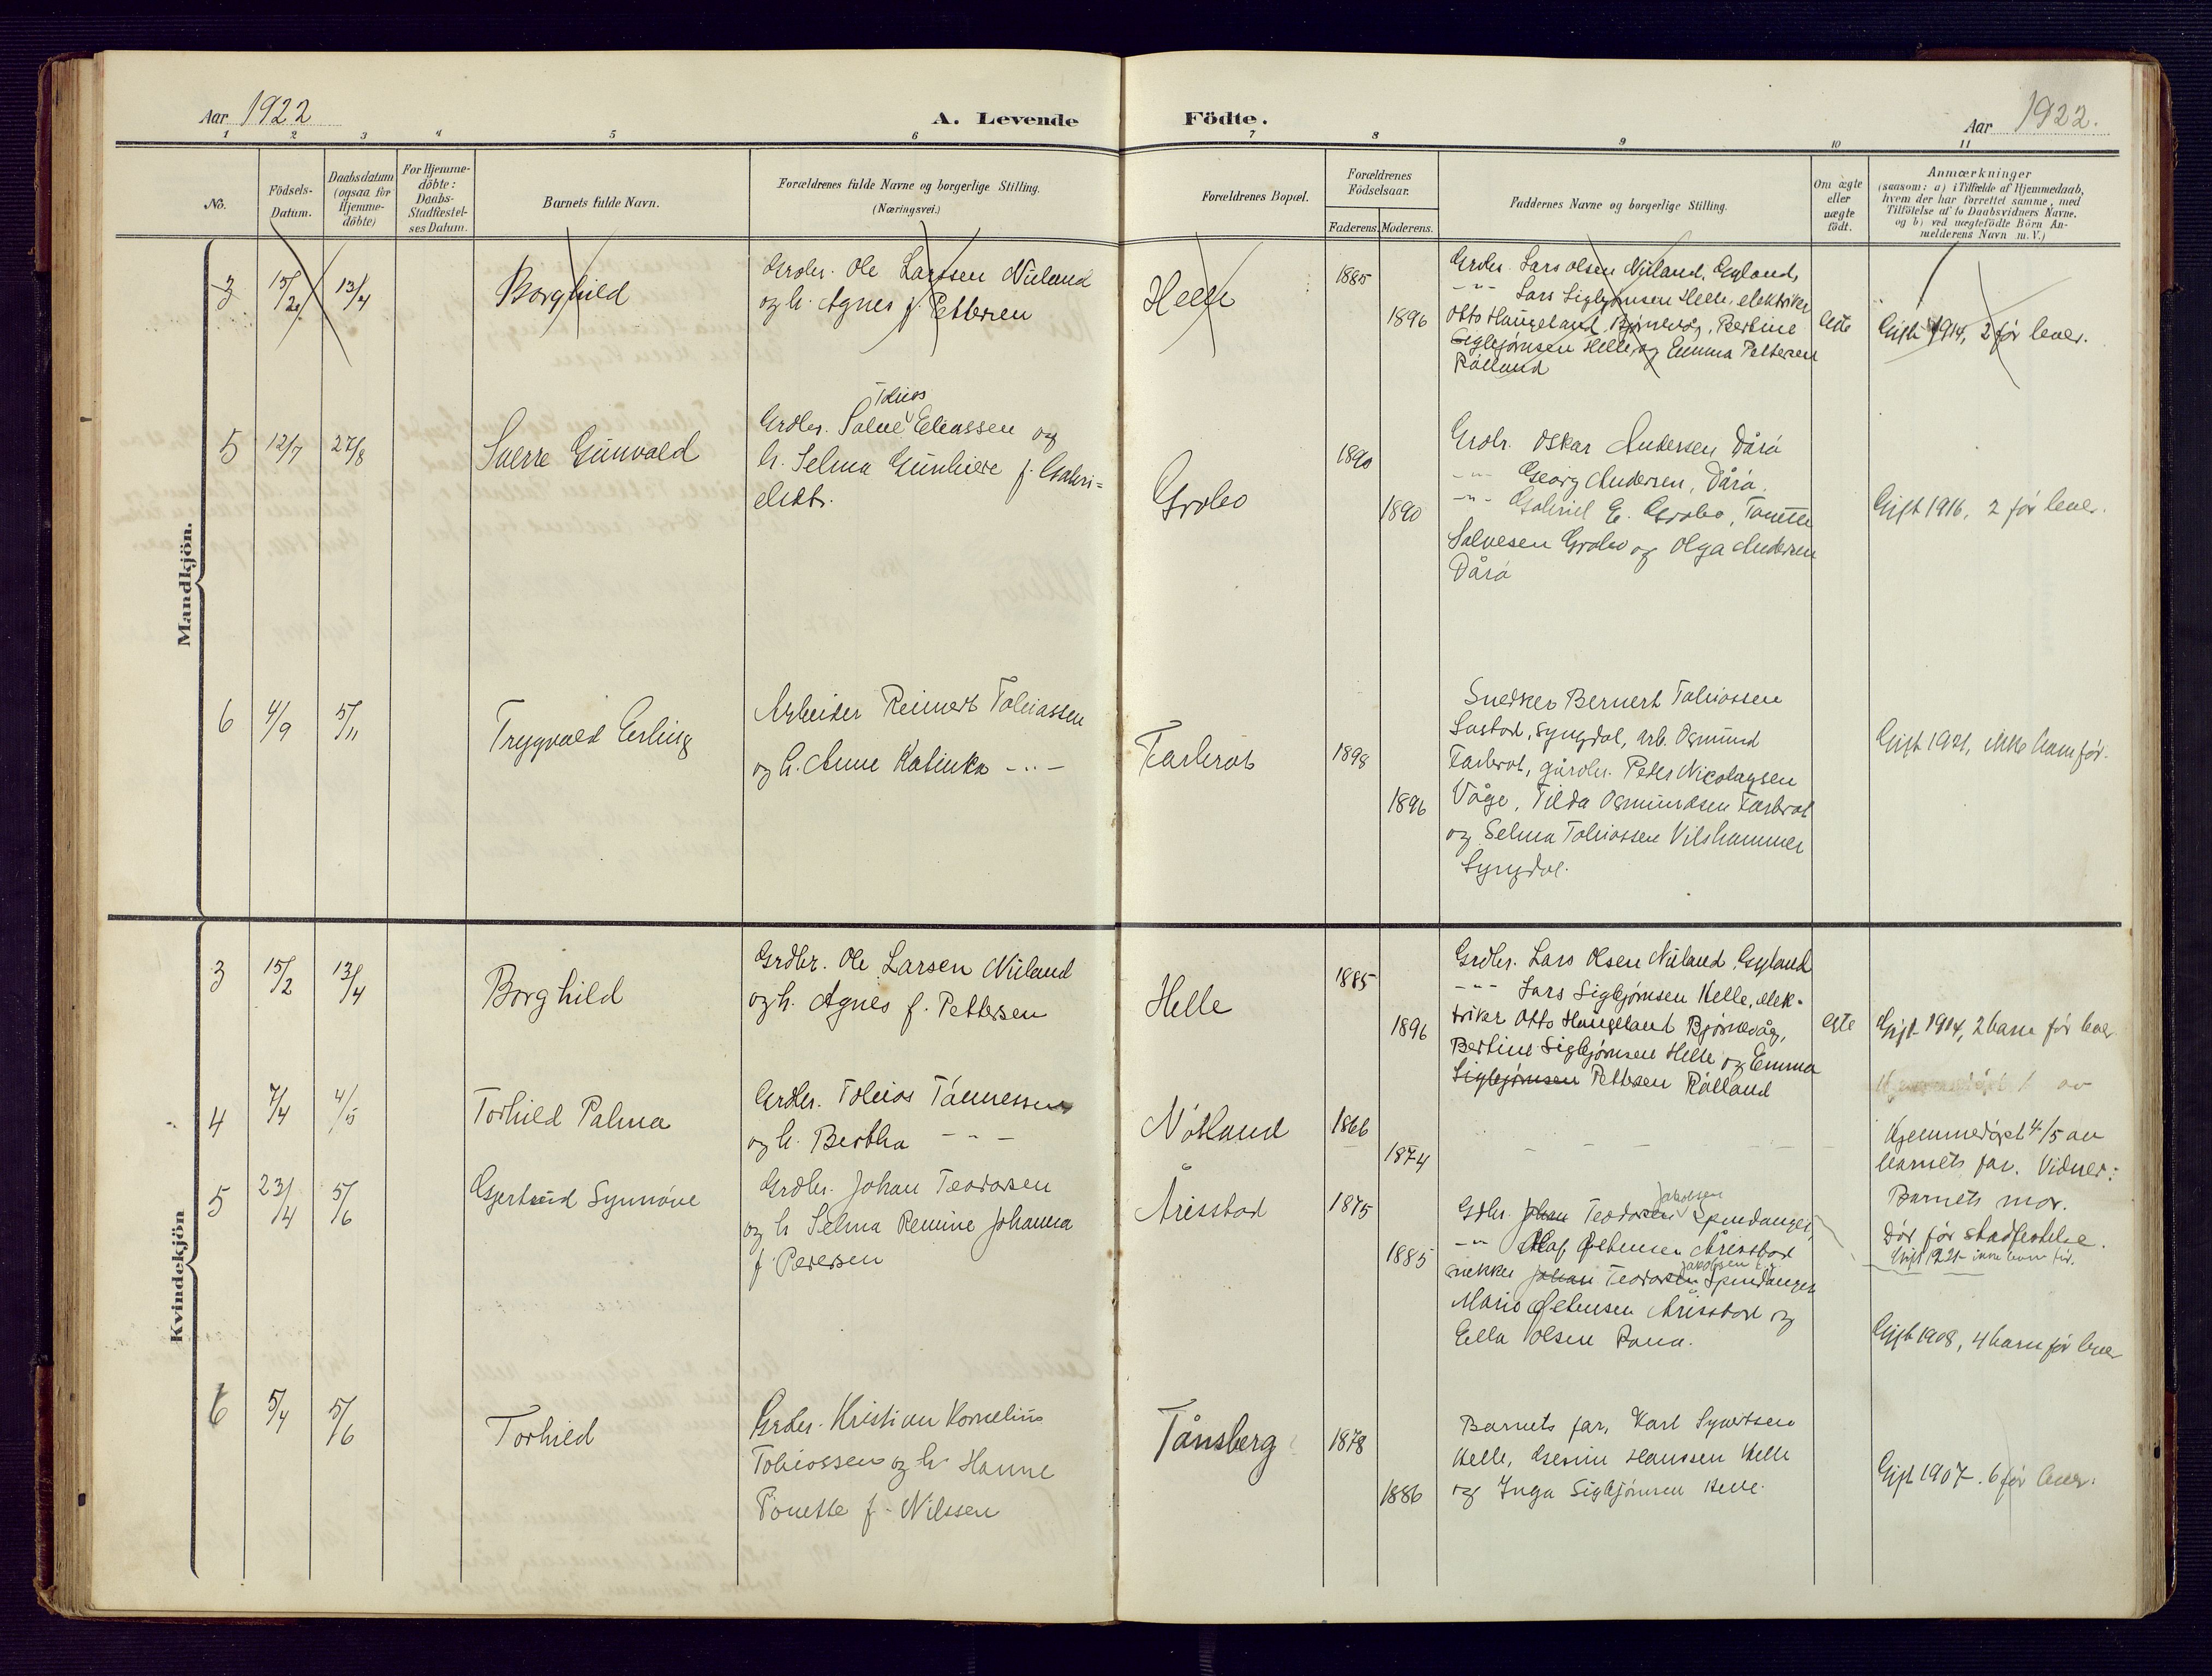 Aar 1922
A. Levende
Födte.
Aar 1922.
1 2 3 4 5 6 7 8 9 10 11
No.
Födsels-
Datum.
Daabsdatum
(ogsaa for
Hjemme-
döbte)
For Hjemme-
döbte:
Daabs-
Stadfæstel-
ses Datum.
Barnets fulde Navn.
Forældrenes fulde Navne og borgerlige Stilling.
(Næringsvei.)
Forældrenes Bopæl.
Forældrenes
Födselsaar.
Faderens. Moderens.
Faddernes Navne og borgerlige Stilling.
Om ægte
eller
uægte
födt.
Anmærkninger
(saasom: a) i Tilfælde af Hjemmedaab,
hvem der har forrettet samme, med
Tilföielse af to Daabsvidners Navne.
og b) ved uægtefödte Börn An-
melderens Navn m. V.)
Mandkjön.
3 15/2 13/4
Borghild
Grdbr. Ole Larssen Niland
og h. Agnes f. Pettersen
Helle
1885
1896
Grdbr. Lars Olsen Niland, Gyland,
-"- Lars Sigbjørnsen Helle, elektriker
Otto Haugeland Bjørnevåg, Bertine
Sigbjørnsen Helle og Emma Pettersen
Rålland
egte
Gift 1914, 2 før lever.
5 12/7 27/8
Sverre Gunvald
Tobias
Grdbr. Salve Eliassen og
h. Selma Gunhere f. Gabri=
elsdt.
Grobo
1890
1890
Grdbr. Oskar Andersen Dårå
-"- Georg Andersen, Dårå.
-"- Gabriel E. Grobo, Tomine
Salvesen Grobo og Olga Andersen
Dårå
Gift 1916, 2 før lever.
6 4/9 5/11
Trygvald Erling
Arbeider Reinert Tobiassen
og h. Anne Katinka -"-
Farbrot
1898
1896
Snedker Bernert Tobiassen
Sustad, Lyngdal, arb. Osmund
Farbrot, gårdbr. Peder Nicolaysen
Våge, Tilda Osmundsen Farbrot
og Selma Tobiassen Vilshammer
Lyngdal.
Gift 1921, ikke barn før.
Kvindekjön
3 15/2 13/4
Borghild
Grdbr. Ole Larsen Niland
og h. Agnes f. Pettersen
Helle
1885
1896
Grdbr. Lars Olsen Niland, Gyland
-"- Lars Sigbjørnsen Helle, elek-
triker Otto Haugeland Bjørnevåg,
Bertine Sigbjørnsen Helle og Emma
Sigbjørnsen Pettersen Rålland
egte
Gift 1914, 2 barn før lever
4 7/4 4/5
Torhild Palma
Grdbr. Tobias Tånnessen
og h. Bertha -"-
Nøtland
1866
1874
Hjemmedøpt 4/5 av
barnets far. Vidner:
Barnets mor.
Dør før stadfestelse.
5 23/4 5/6
Gjertrud Synnøve
Grdbr. Johan Teodorsen
og h Selma Remine Johanna
f. Pedersen
Årisstad
1875
1885
Jakobsen
Gdbr. Johan Teodorsen Spindangen,
-"- Olaf Gabrielsen Årisstad
Jakobsen
snekker Johan Teodorsen Spindangen
Marie Gabrielsen Årisstad og
Ella Olsen Rana.
Gift 1908, 4 barn før lever
6 5/4 5/6
Torhild
Grdbr. Kristian Kornelius
Tobiassen og h Hanne
Tonette f. Nilssen
Tånsberg
1878
1886
Barnets far, Karl Syvertsen
Helle, Gesine Hanssen Helle
og Inga Sigbjørnsen Helle.
Gift 1907. 6 før lever.